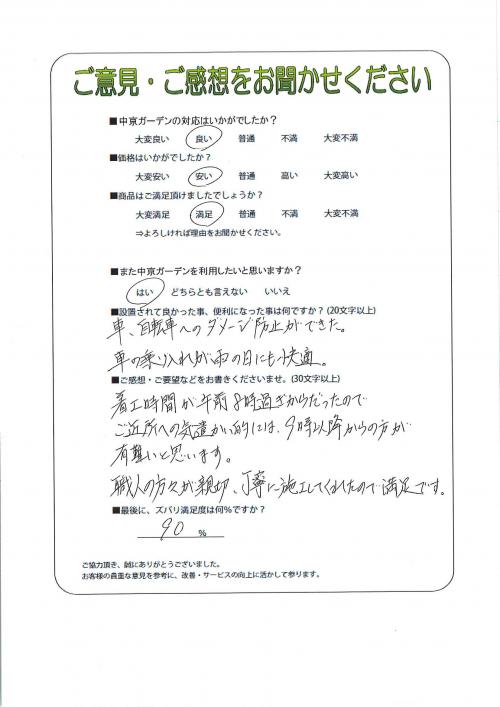 ご意見・ご感想をお聞かせください
■中京ガーデンの対応はいかがでしたか？
大変良い 良い 普通 不満 大変不満
■価格はいかがでしたか？
大変安い 安い 普通 高い 大変高い
■商品はご満足頂けましたでしょうか？
大変満足 満足 普通 不満 大変不満
⇒よろしければ理由をお聞かせください。
■また中京ガーデンを利用したいと思いますか？
はい どちらとも言えない いいえ
■設置されて良かった事、便利になった事は何ですか？(20文字以上)
車、自転車へのダメージ防止ができた。
車の乗り入れが雨の日にも快適。
■ご感想・ご要望などをお書きくださいませ。(30文字以上)
着工時間が午前8時過ぎからだったので
ご近所への気遣い的には、9時以降からの方が
有難いと思います。
職人の方々が親切、丁寧に施工してくれたので満足です。
■最後に、ズバリ満足度は何％ですか？
90 ％
ご協力頂き、誠にありがとうございました。
お客様の貴重な意見を参考に、改善・サービスの向上に活かして参ります。